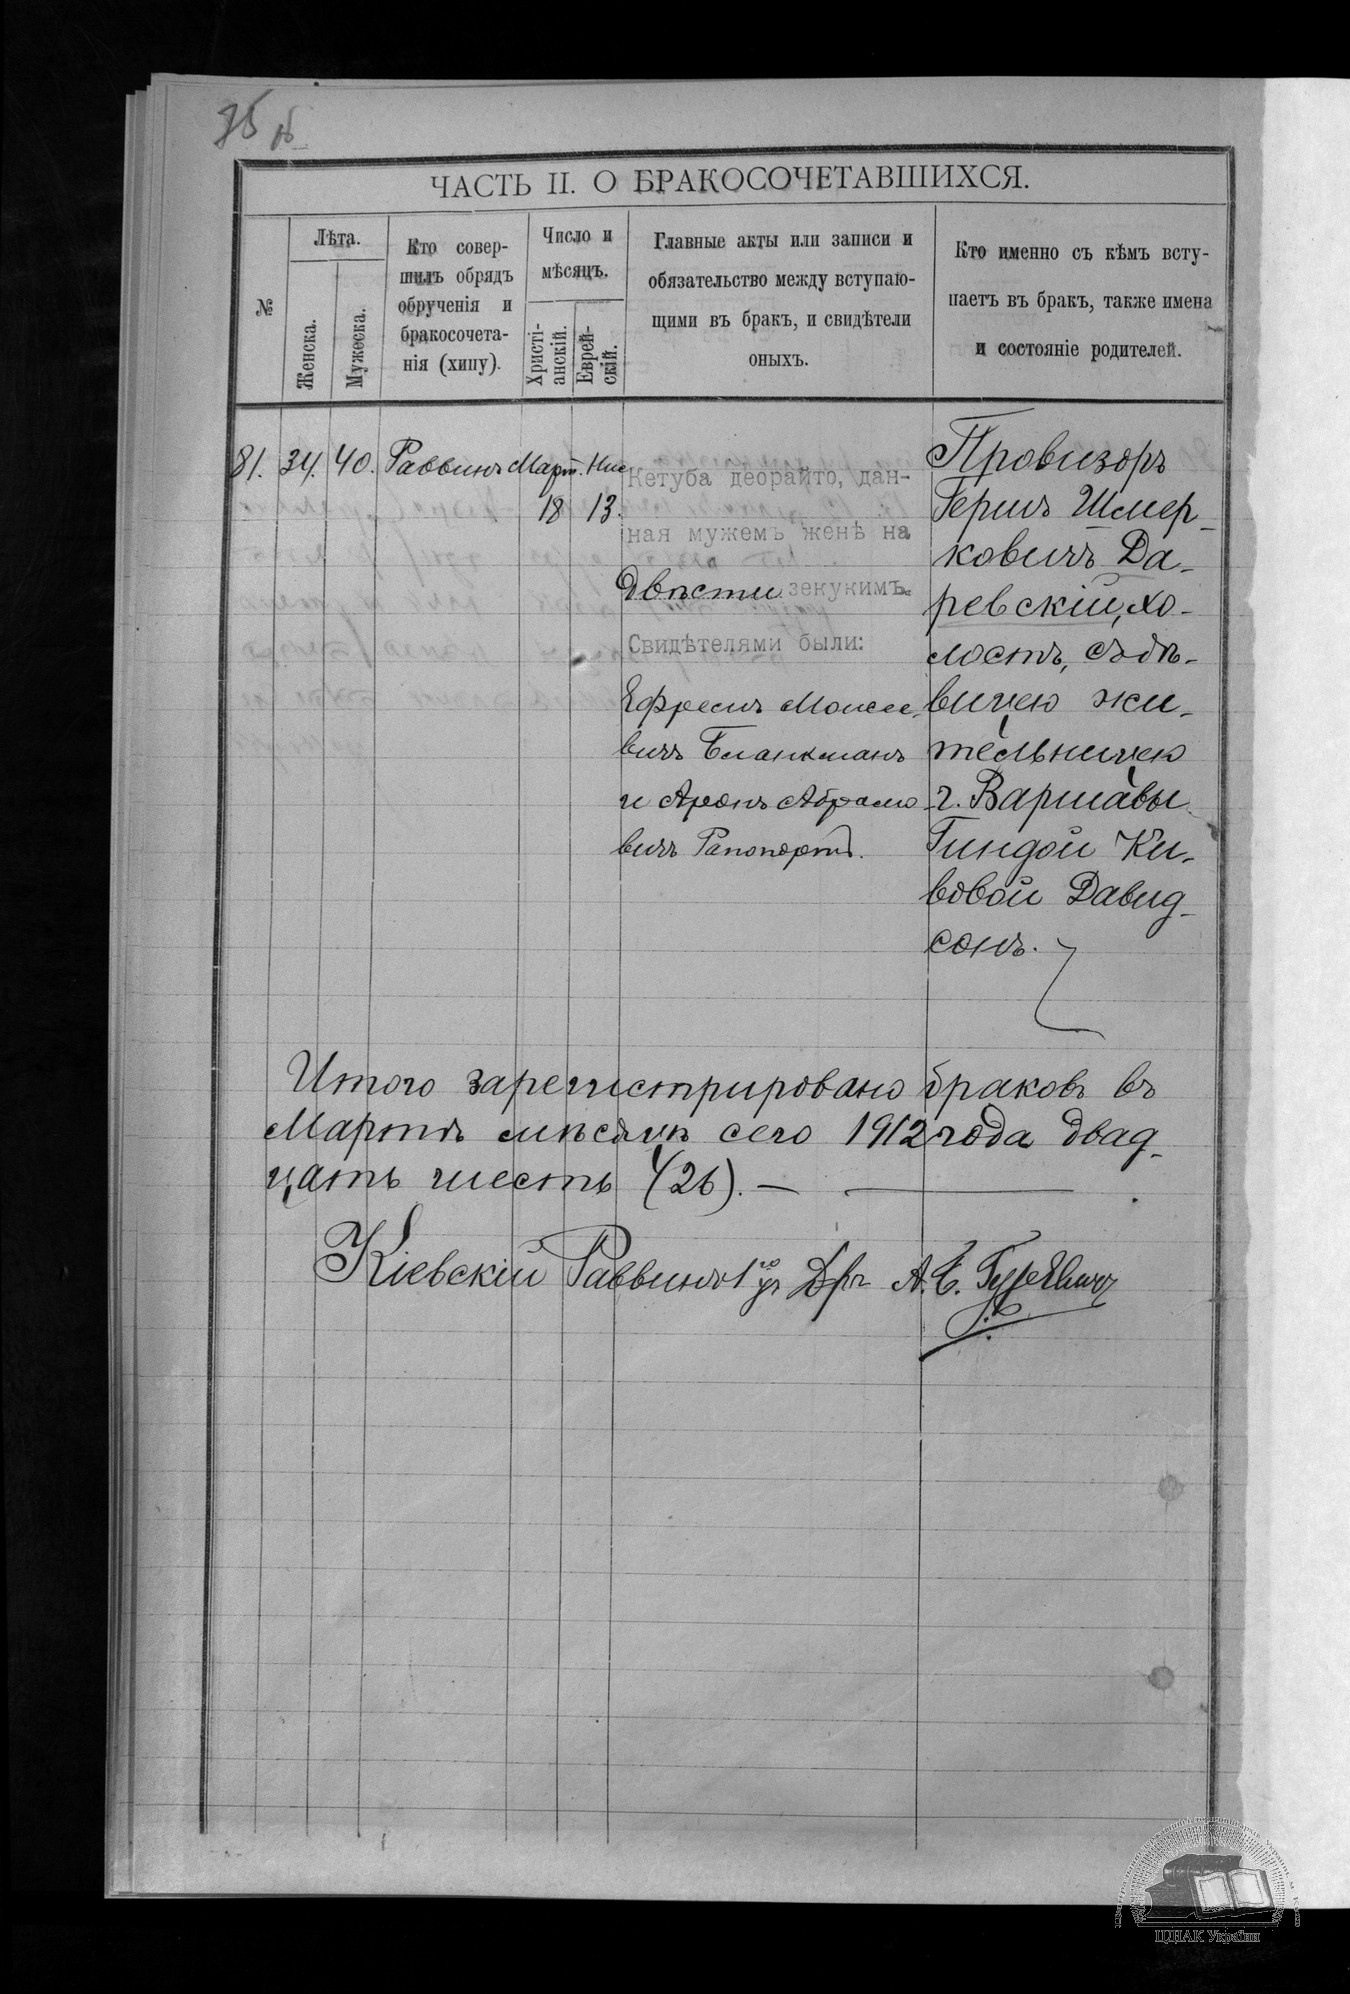 ЧАСТЬ II. О БРАКОСОЧЕТАВШИХСЯ.
№
Лѣта.
Женска.
Мужеска.
Кто совер-
шилъ обрядъ
обрученія и
бракосочета-
нія (хипу).
Число и
мѣсяцъ.
Христі-
анскій.
Еврей-
скій.
Главные акты или записи и
обязательство между вступаю-
щими въ бракъ, и свидѣтели
оныхъ.
Кто именно съ кѣмъ всту-
паетъ въ бракъ, также имена
и состояніе родителей.
81. 34. 40. Раввинъ Март. Нис
18 13.
Кетуба деорайто, дан-
ная мужемъ женѣ на
Двѣсти зекукимъ.
Свидѣтелями были:
Ефремъ Моисее-
вичъ Бланкманъ
и Аронъ Абрамо
вичъ Рапопортъ.
Провизоръ
Гершъ Шмер-
ковичъ Да-
ревскій, хо-
лостъ, съ дѣ-
вицею жи-
тельницею
г. Варшавы
Гиндой Ки-
вовой Давид-
сонъ.
Итого зарегистрировано браковъ въ
Мартѣ мѣсяцѣ сего 1912 года двад-
цать шесть (26). —
Кіевскій Раввинъ 1го уч Дръ А. Б. Гуревичъ
ЦДІАК України